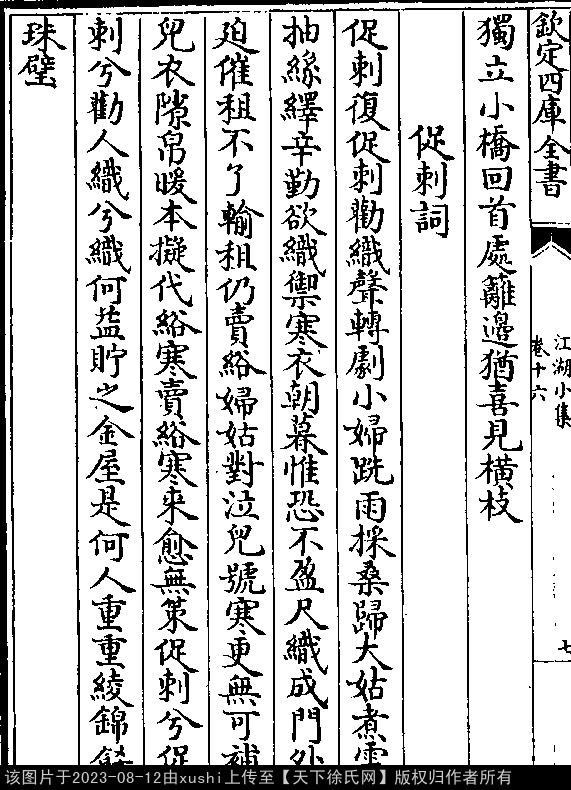 欽定四庫全書
江湖小集
卷十六
七
獨立小橋回首處籬邊猶喜見橫枝
促刺詞
促刺復促刺勸織聲轉劇小婦跣雨採桑歸大姑煮雪
抽緣繹辛勤欲織禦寒衣朝暮惟恐不盈尺織成門外
廹催租不了輸租仍賣綌婦姑對泣兒號寒更無可補
兒衣隙帛暖本擬代綌寒賣綌寒來愈無策促刺兮促
刺兮勸人織兮織何益貯之金屋是何人重重綾錦飾
珠璧
该图片于2023-08-12由xushi上传至【天下徐氏网】版权归作者所有